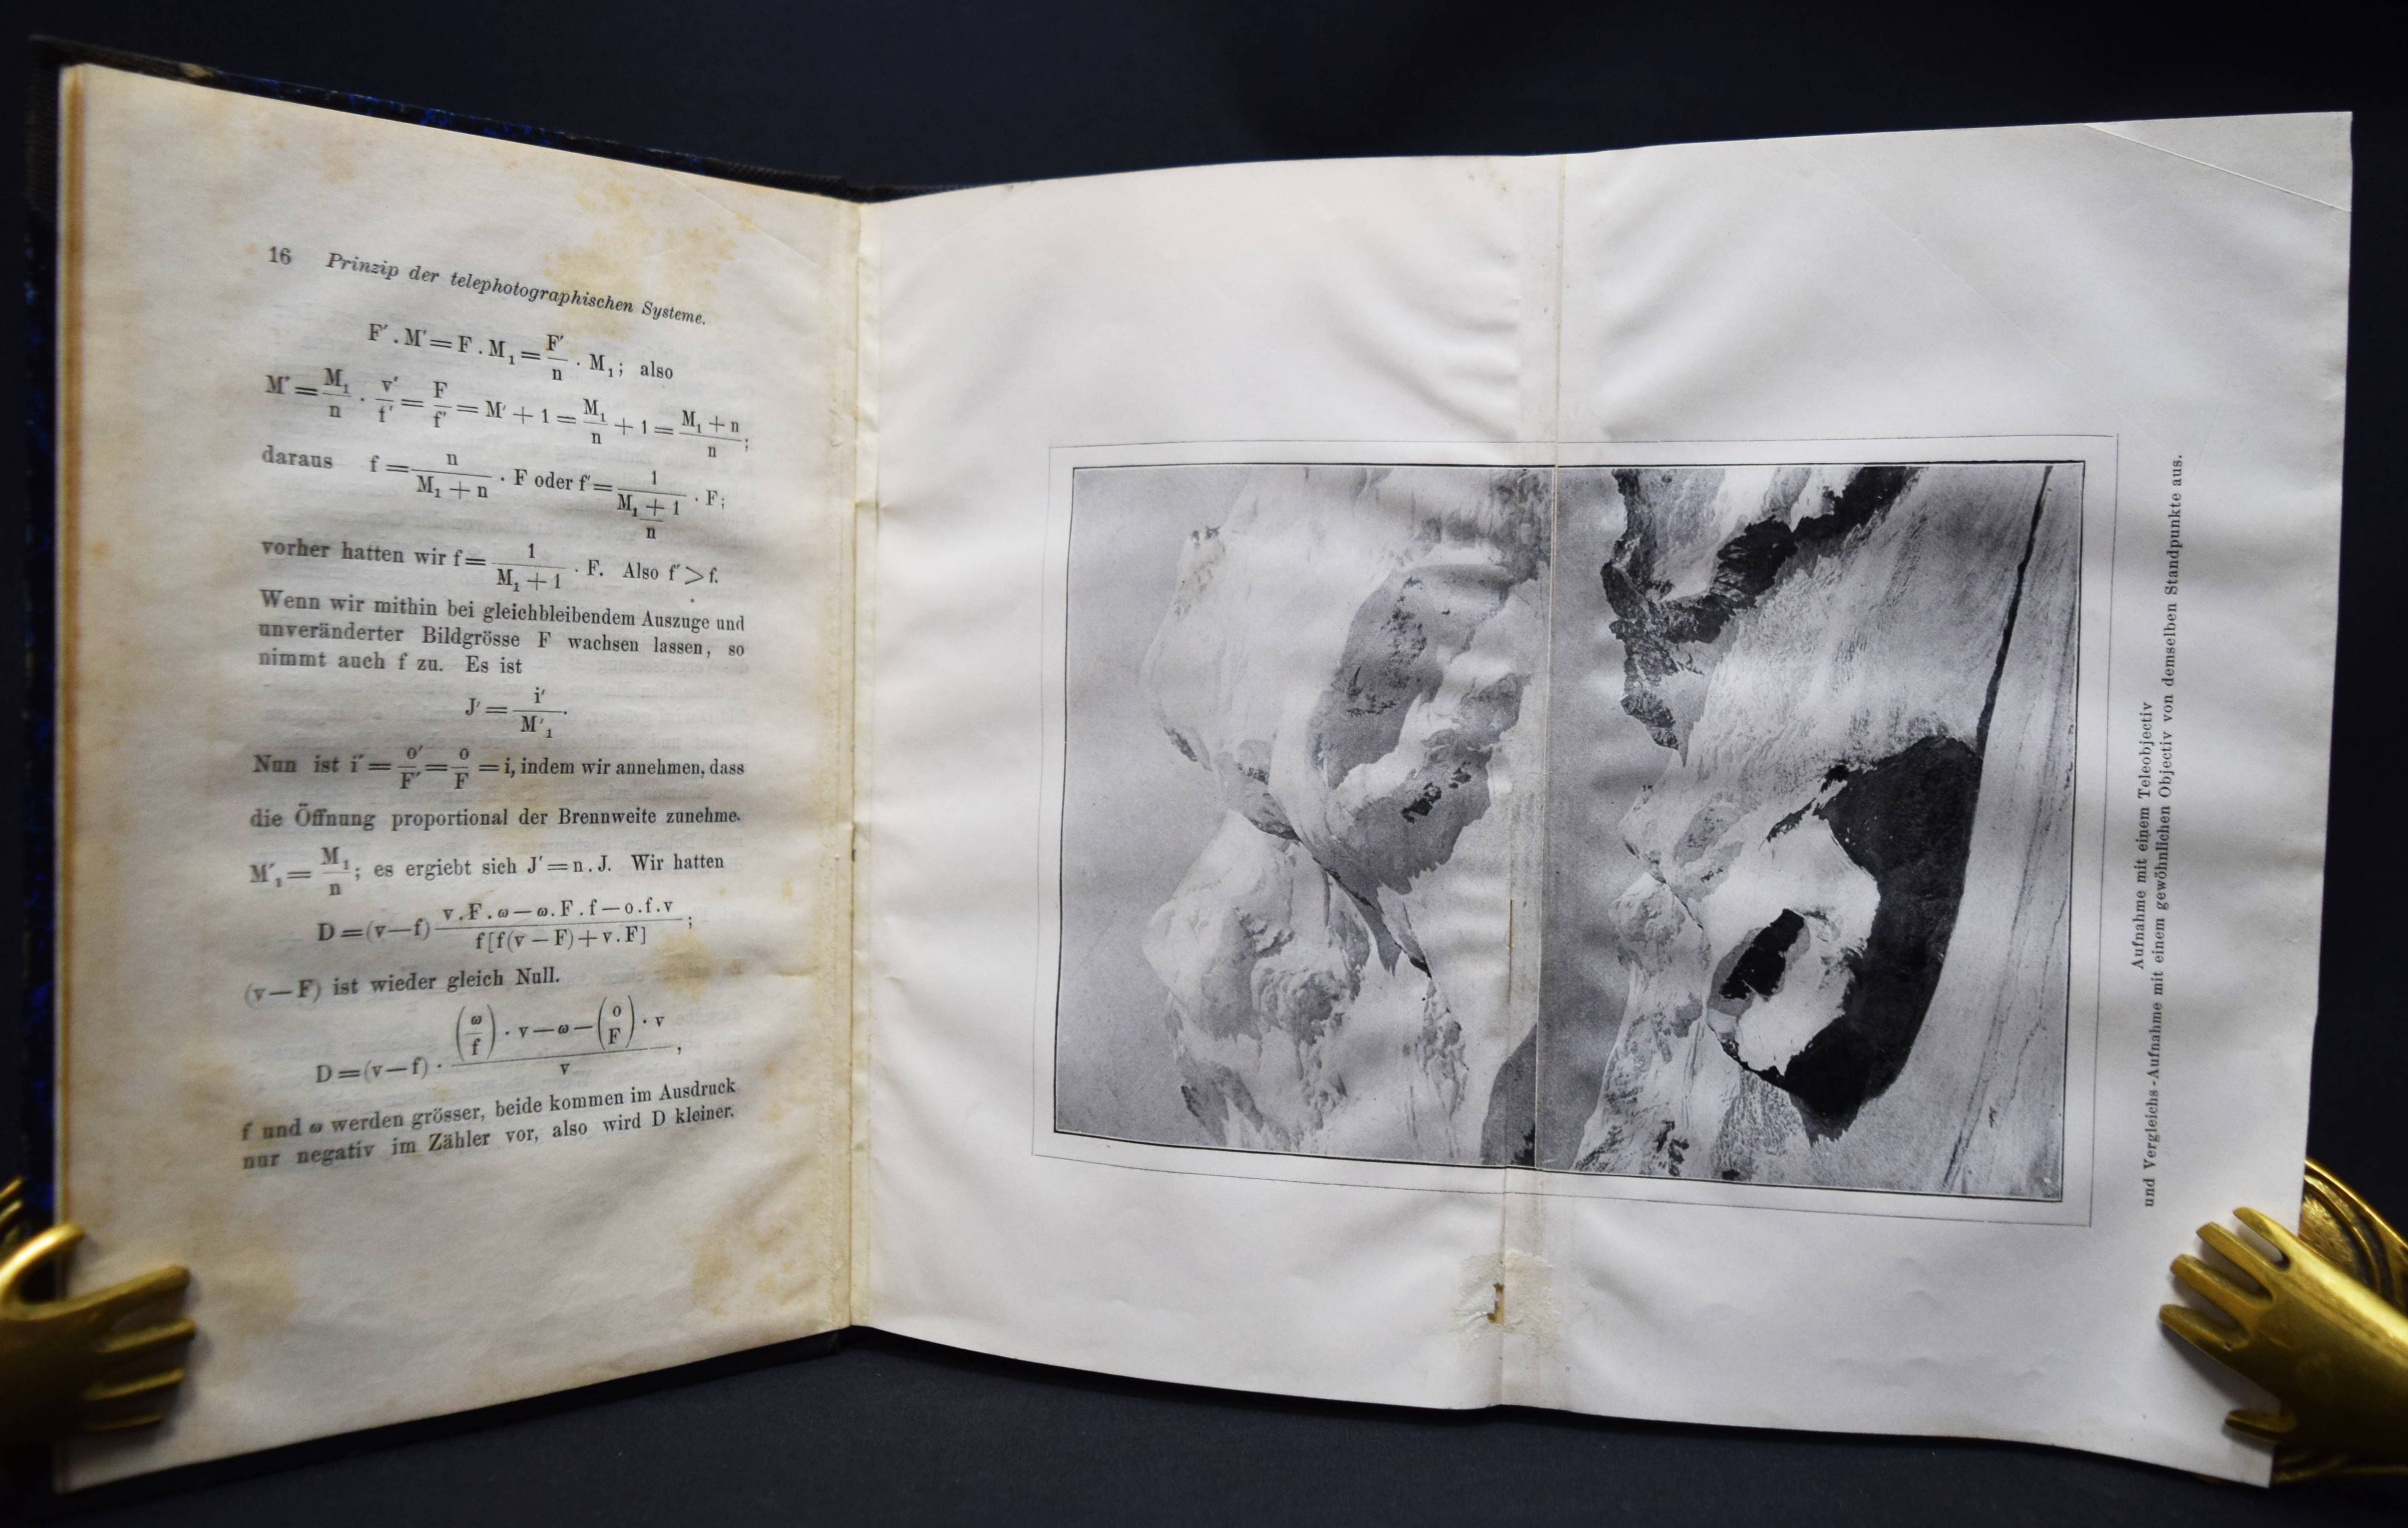 16 Prinzip der telephotographischen Systeme.
F′ . M′ = F . M₁ = F′/n · M₁; also
M′ = M₁/n · v′/f′ = F/f′ = M′ + 1 = M₁/n + 1 = (M₁ + n)/n;
daraus f = n/(M₁ + n) · F oder f′ = 1/((M₁ + 1)/n) · F;
vorher hatten wir f = 1/(M₁ + 1) · F. Also f′ > f.
Wenn wir mithin bei gleichbleibendem Auszuge und
unveränderter Bildgrösse F wachsen lassen, so
nimmt auch f zu. Es ist
J′ = i′/M′₁.
Nun ist i′ = o′/F′ = o/F = i, indem wir annehmen, dass
die Öffnung proportional der Brennweite zunehme.
M′₁ = M₁/n; es ergiebt sich J′ = n . J. Wir hatten
D = (v—f) (v . F . ω — ω . F . f — o . f . v)/(f [f (v — F) + v . F]);
(v — F) ist wieder gleich Null.
D = (v—f) · ((ω/f) · v — ω — (o/F) · v)/v,
f und ω werden grösser, beide kommen im Ausdruck
nur negativ im Zähler vor, also wird D kleiner.
Aufnahme mit einem Teleobjectiv
und Vergleichs-Aufnahme mit einem gewöhnlichen Objectiv von demselben Standpunkte aus.